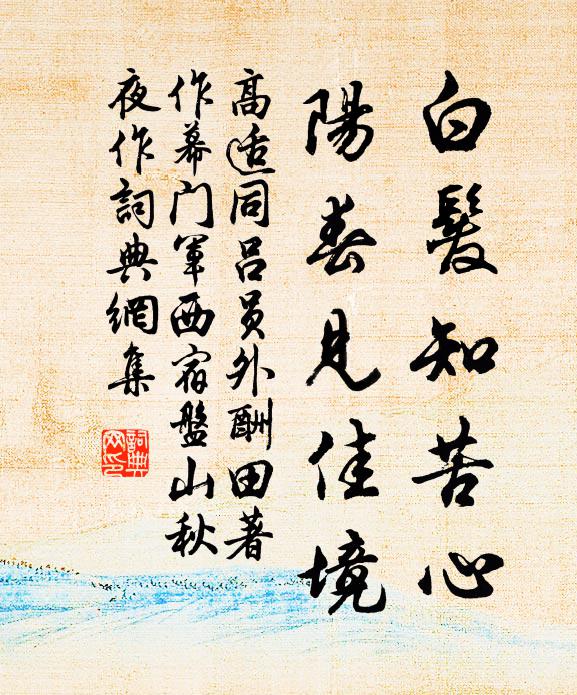 白髮知苦心
陽春見佳境
高适同呂員外酬田著
作幕门軍西宿盤山秋
夜作詞典網集
詞典
网印